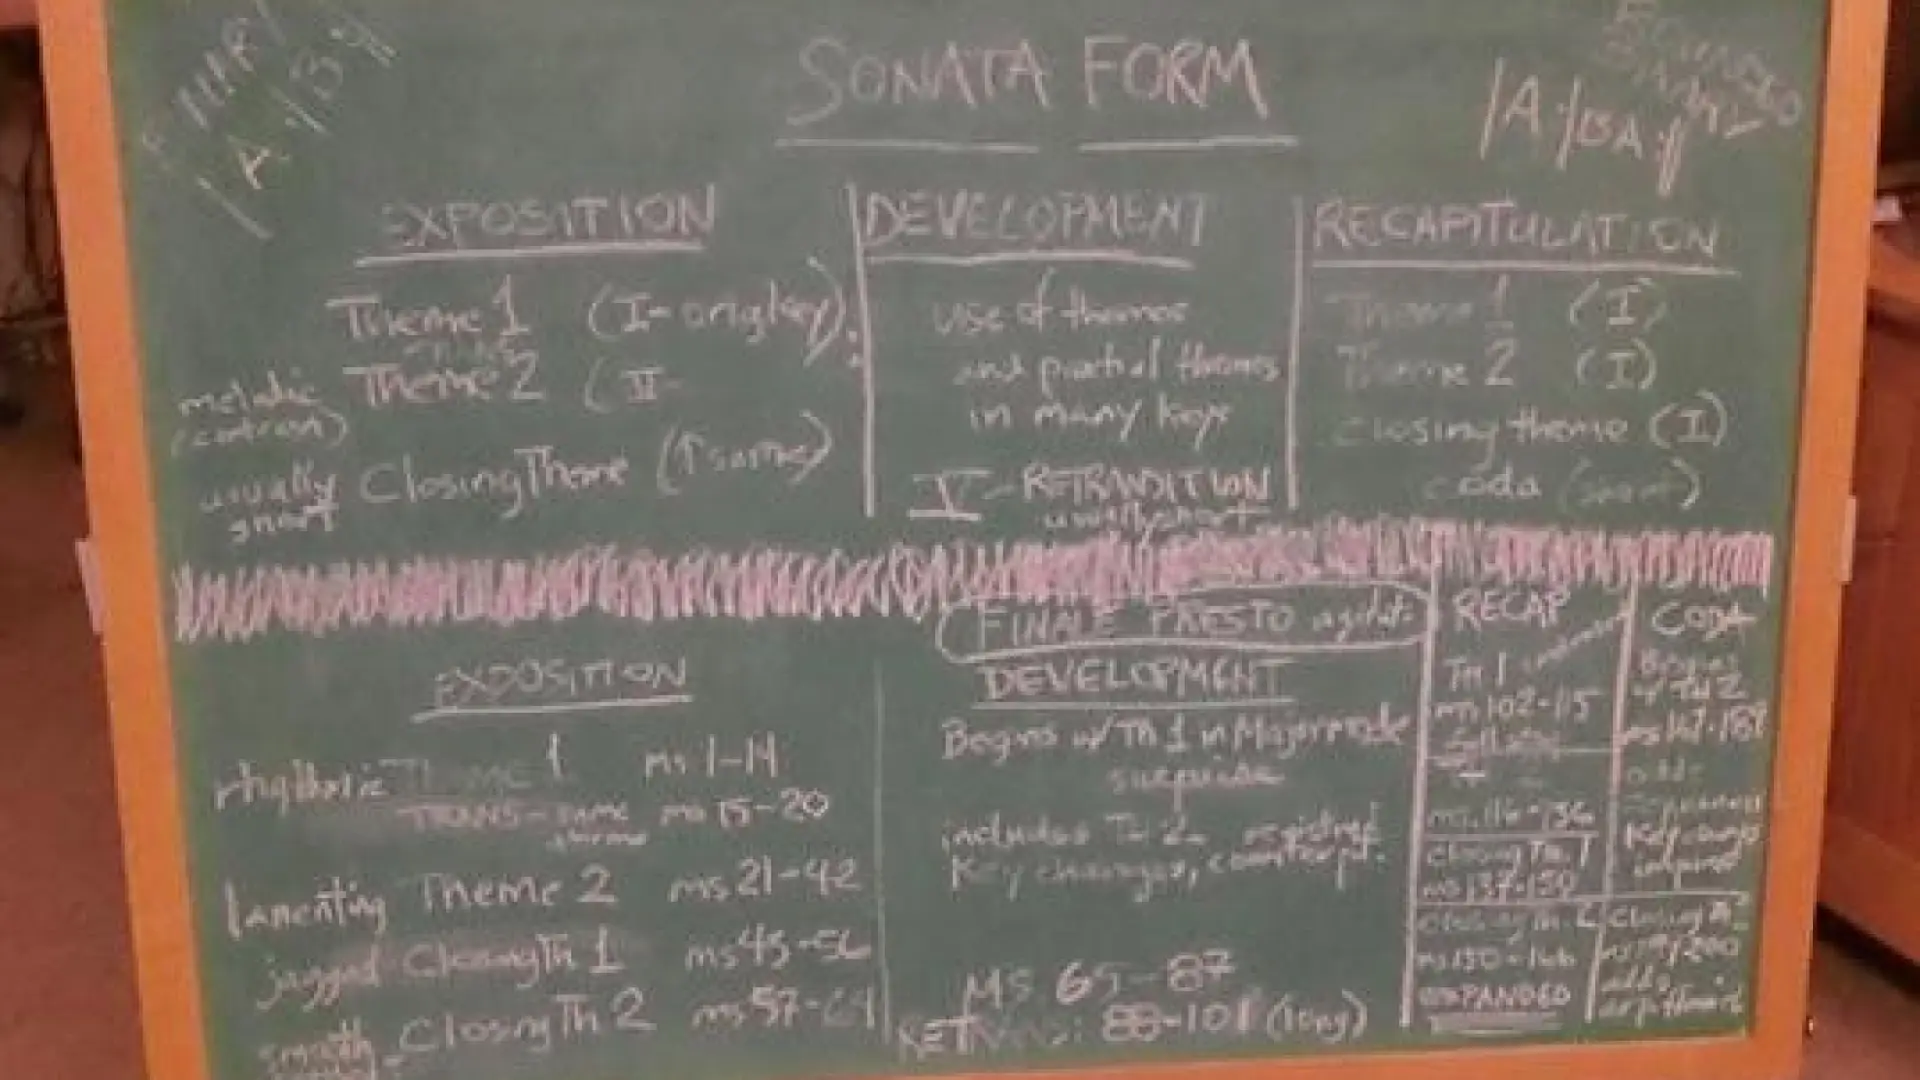 SONATA FORM
|A:|BA:|
EXPOSITION
Theme 1 (I-orig key)
melodic Theme 2 (II-
(contrast)
usually Closing Theme (↑ same)
short
DEVELOPMENT
use of themes
and partial themes
in many keys
V - RETRANSITION
usually short
RECAPITULATION
Theme 1 (I)
Theme 2 (I)
closing theme (I)
coda (short)
FINALE PRESTO agitat.
EXPOSITION
rhythmic Theme 1 ms 1-14
TRANS - same ms 15-20
theme
lamenting Theme 2 ms 21-42
jagged Closing Th 1 ms 43-56
smooth Closing Th 2 ms 57-64
DEVELOPMENT
Begins w/ Th 1 in Major mode
surprise
includes Th 2
Key changes, counterpt.
MS 65-87
RETRANS: 88-101 (long)
RECAP
Th 1
ms 102-115
ms 116-136
closing Th. 1
ms 137-150
closing Th. 2
ms 150-166
EXPANDED
CODA
Begins
w Th 2
ms 167-189
adds
Key change
Closing Th
adds